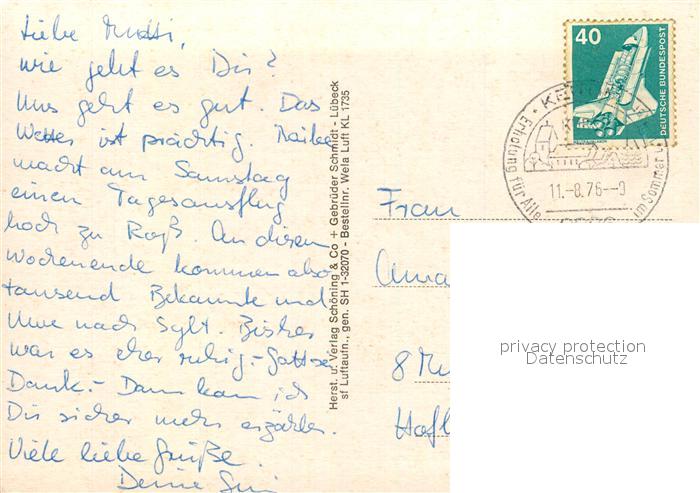 Liebe Mutti,
wie geht es Dir?
Uns geht es gut. Das
Wetter ist prächtig.
macht am Samstag
einen Tagesausflug
hoch zu Roß. An diesem
Wochenende kommen also
tausend Bekannte und
nach Sylt. Bisher
war es eher ruhig - Gott sei
Dank. - Dann kann ich
Dir sicher mehr erzählen.
Viele liebe Grüße.
Deine
Herst. u. Verlag Schöning & Co + Gebrüder Schmidt - Lübeck
sf Luftaufn., gen. SH 1-32070 - Bestellnr. Wela Luft KL 1735
40
DEUTSCHE BUNDESPOST
Erholung für Alle
im Sommer
11.-8.76--9
Frau
8
privacy protection
Datenschutz